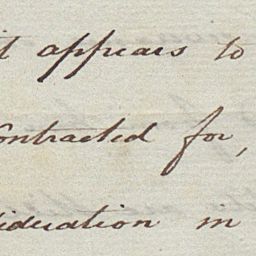 it appears to
contracted for,
sideration in